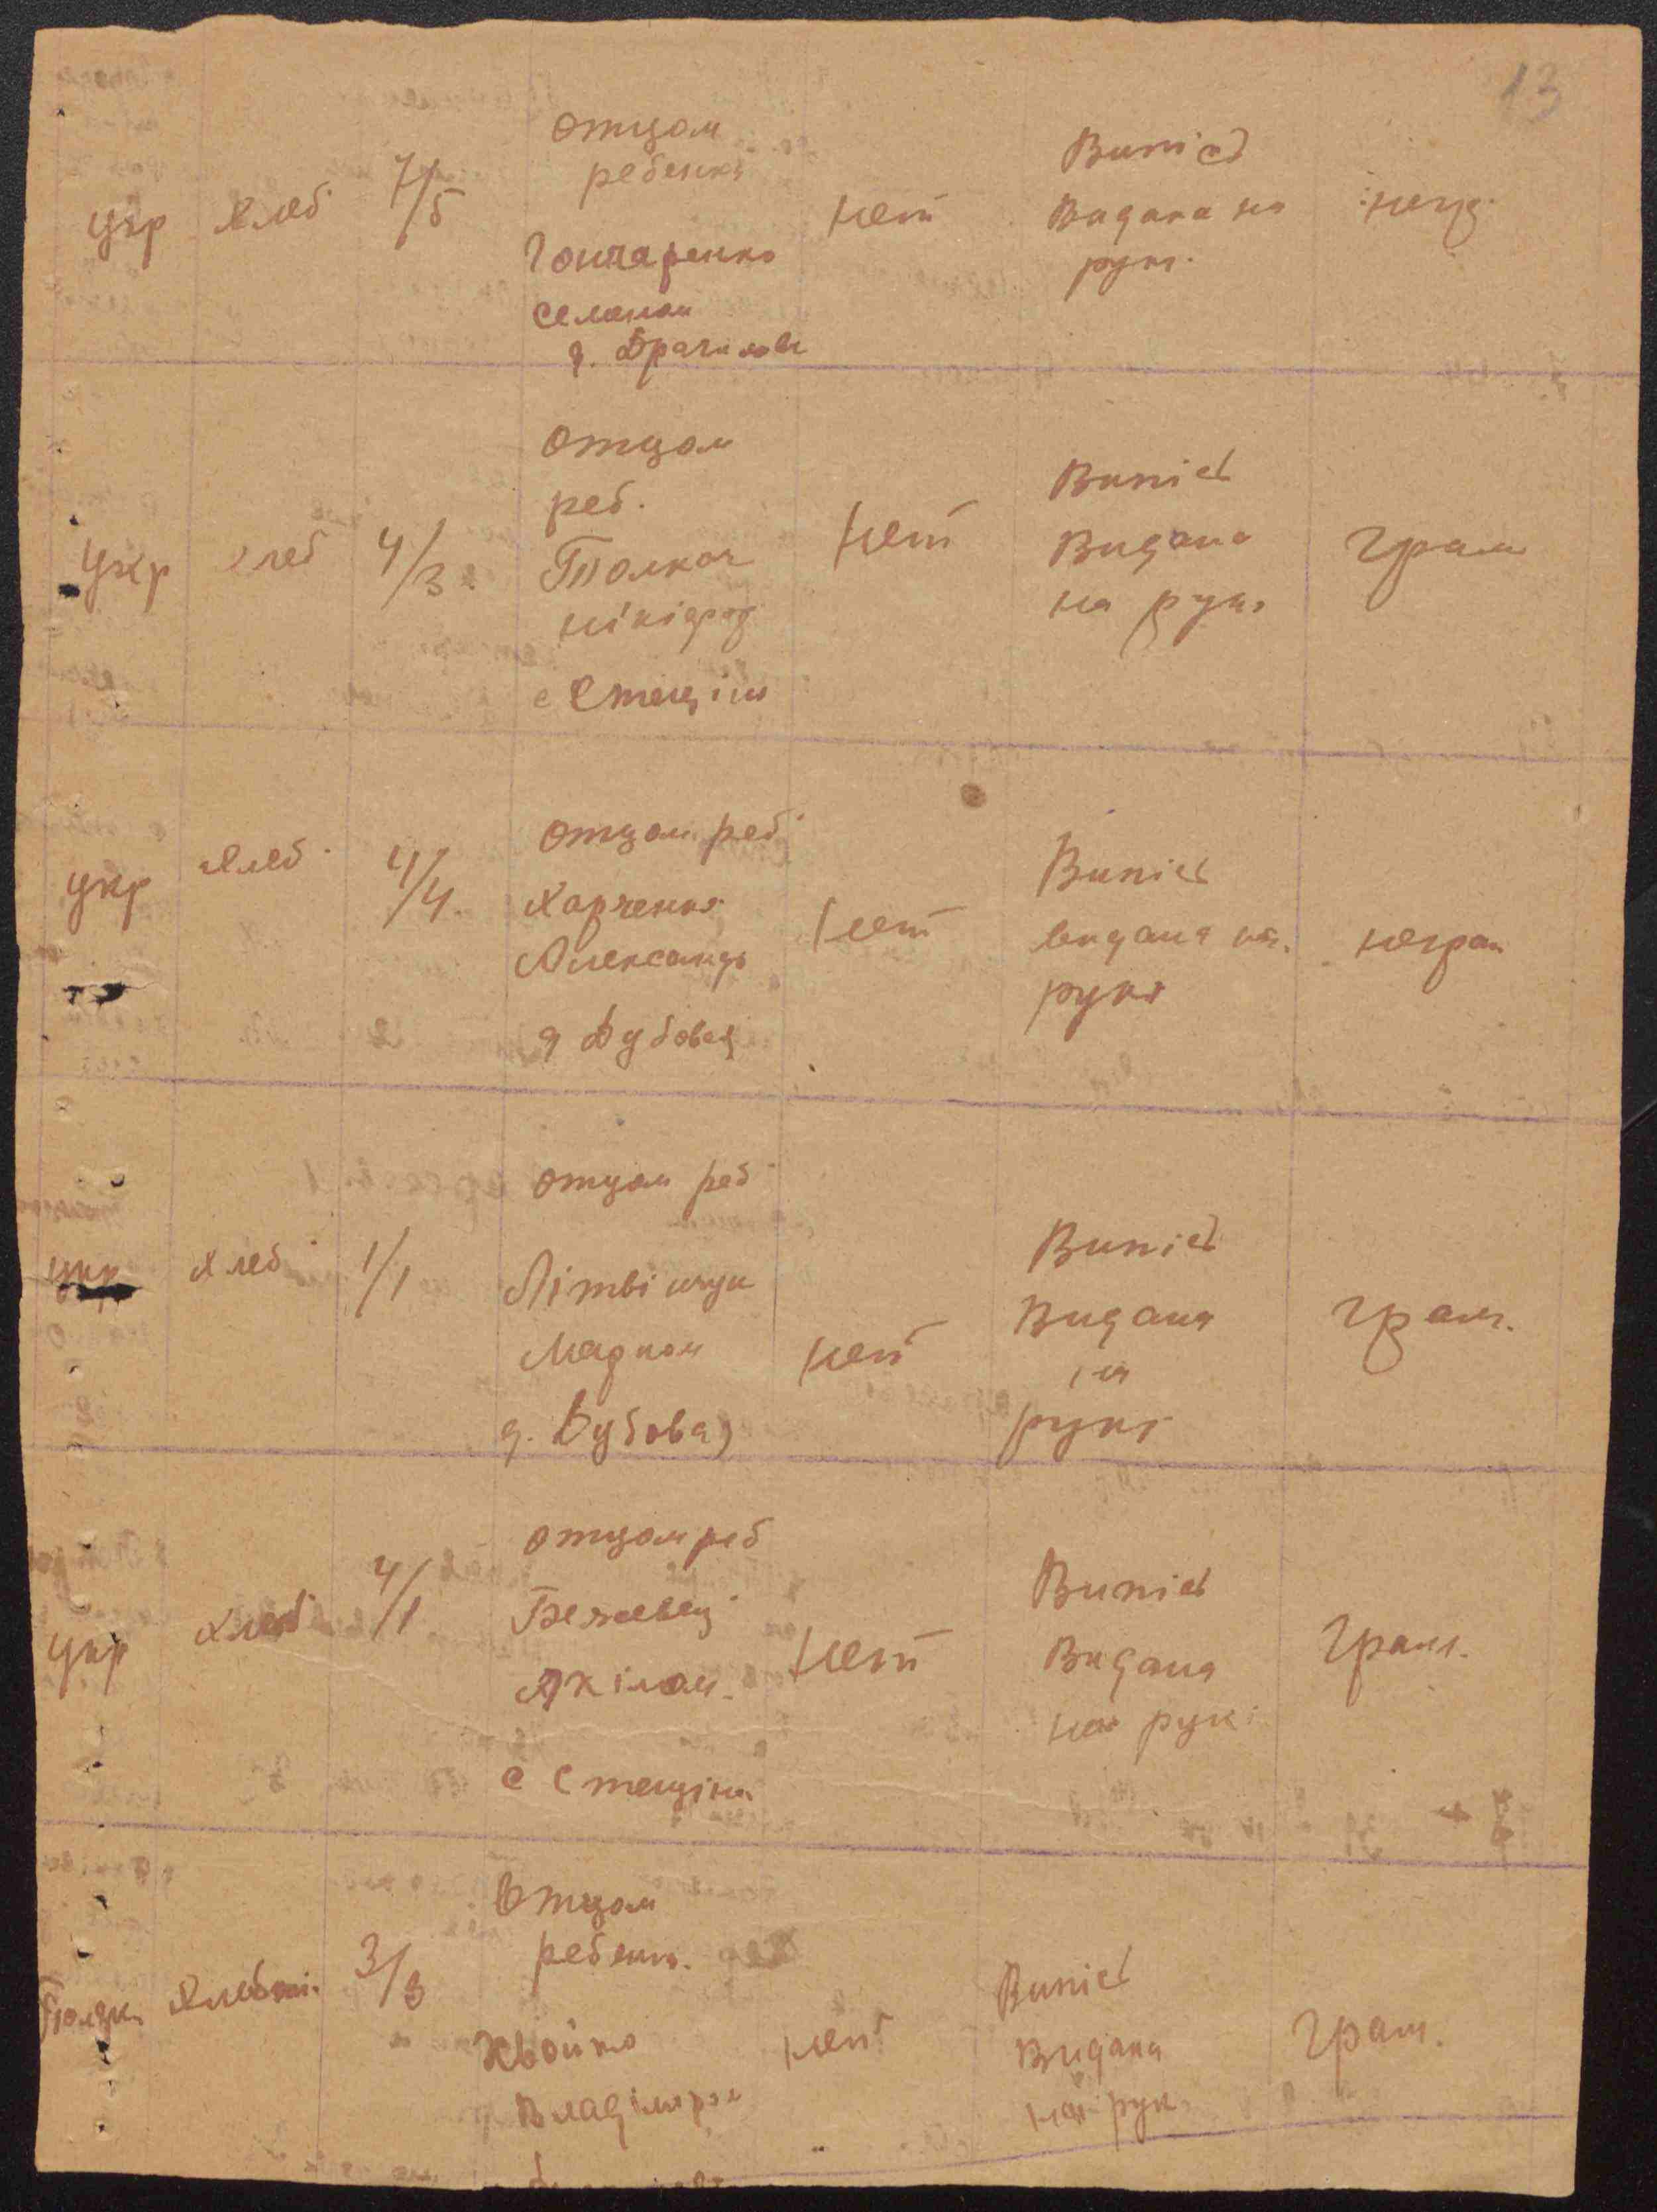 13
укр хлеб 7/5 отцом ребенка Гончаренко Семеном нет Випись Видана на руки негр.
укр хлеб 4/3 отцом реб. Толкач нікідор с Стещіно нет Випись Видана на рукі грам
укр хлеб 4/4. отцом реб. Харченко Александр д Дубовец нет Випись видана на. рукі неграм
укр хлеб 1/1 отцом реб Літвінчук Марком д. Дубовая нет Випись Видана на рукі грам.
укр хлеб 4/1 отцом реб Бежевец Якімом. с Стещіна нет Випись Видана на рукі грам.
Поляк. 3/3 Отцом ребенка. Хвойко Владіміром нет Випись Видана на рук. грам.